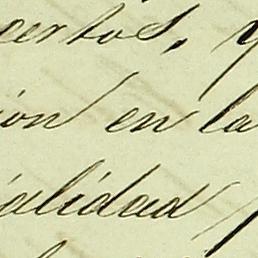 ertos, y
ión en la
alidad